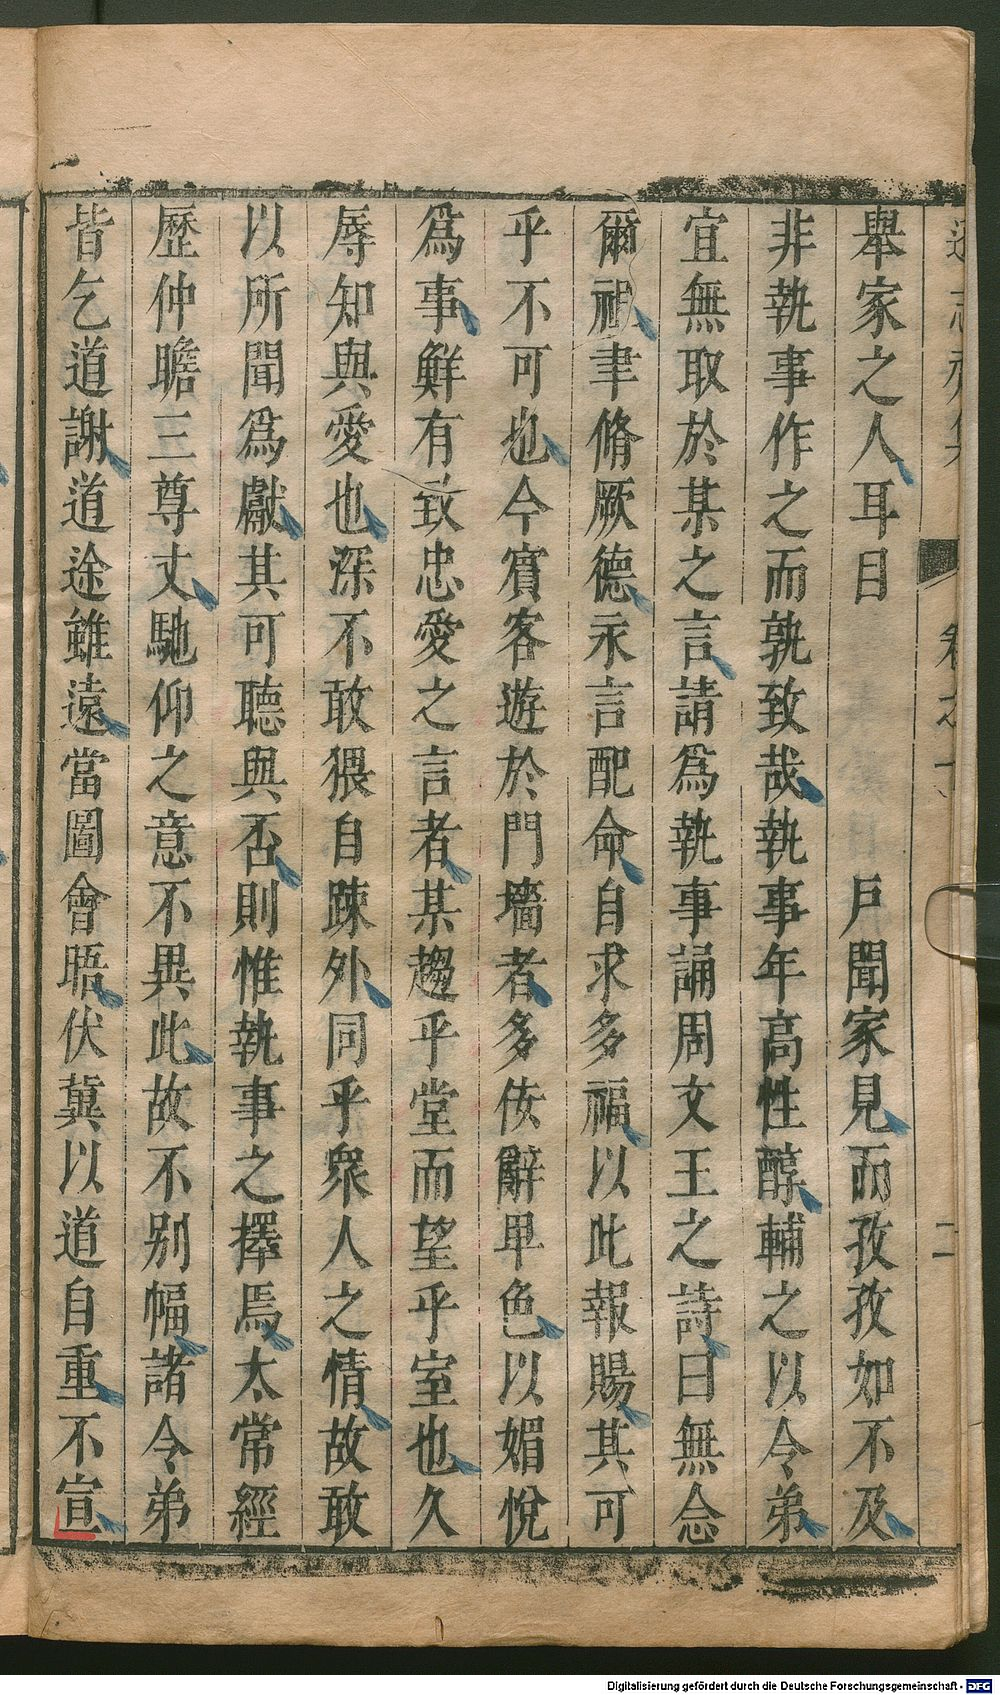 舉家之人耳目　　　　戶聞家見而孜孜如不及
非執事作之而孰致哉執事年高性醇輔之以令弟
宜無取於某之言請爲執事誦周文王之詩曰無念
爾祖聿脩厥德永言配命自求多福以此報賜其可
乎不可也今賓客遊於門墻者多侫辭卑色以媚悅
爲事鮮有致忠愛之言者某趨乎堂而望乎室也久
辱知與愛也深不敢猥自踈外同乎衆人之情故敢
以所聞爲獻其可聽與否則惟執事之擇焉太常經
歷仲瞻三尊丈馳仰之意不異此故不别幅諸令弟
皆乞道謝道途雖遠當圖會晤伏兾以道自重不宣
二
Digitalisierung gefördert durch die Deutsche Forschungsgemeinschaft - DFG